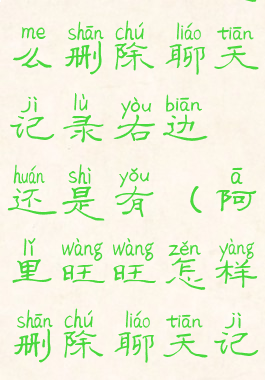 me shān chú liáo tiān
么删除聊天
jì lù yòu biān
记录右边
huán shì yǒu ā
还是有（阿
lǐ wàng wàng zěn yàng
里旺旺怎样
shān chú liáo tiān jì
删除聊天记